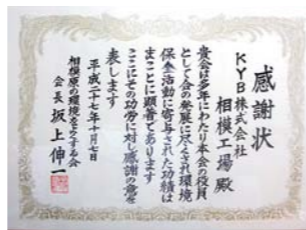 感謝状
KYB株式会社
相模工場 殿
貴会は多年にわたり本会の役員
として会の発展に尽くされ環境
保全活動に寄与された功績は
まことに顕著であります
ここにその功労に対し感謝の意を
表します
平成二十七年十月七日
相模原の環境をよくする会
会長 坂上伸一